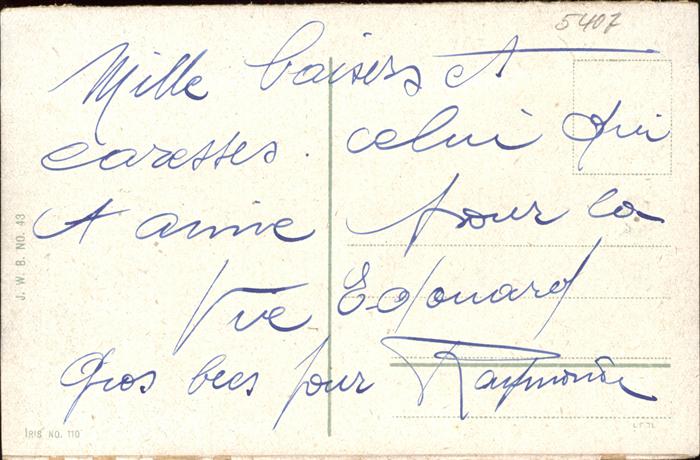 5407
Mille baisers et
caresses. celui qui
t'aime pour la
Vie Edouard
Gros becs pour Raymonde
J. W. B. NO. 43
IRIS NO. 110